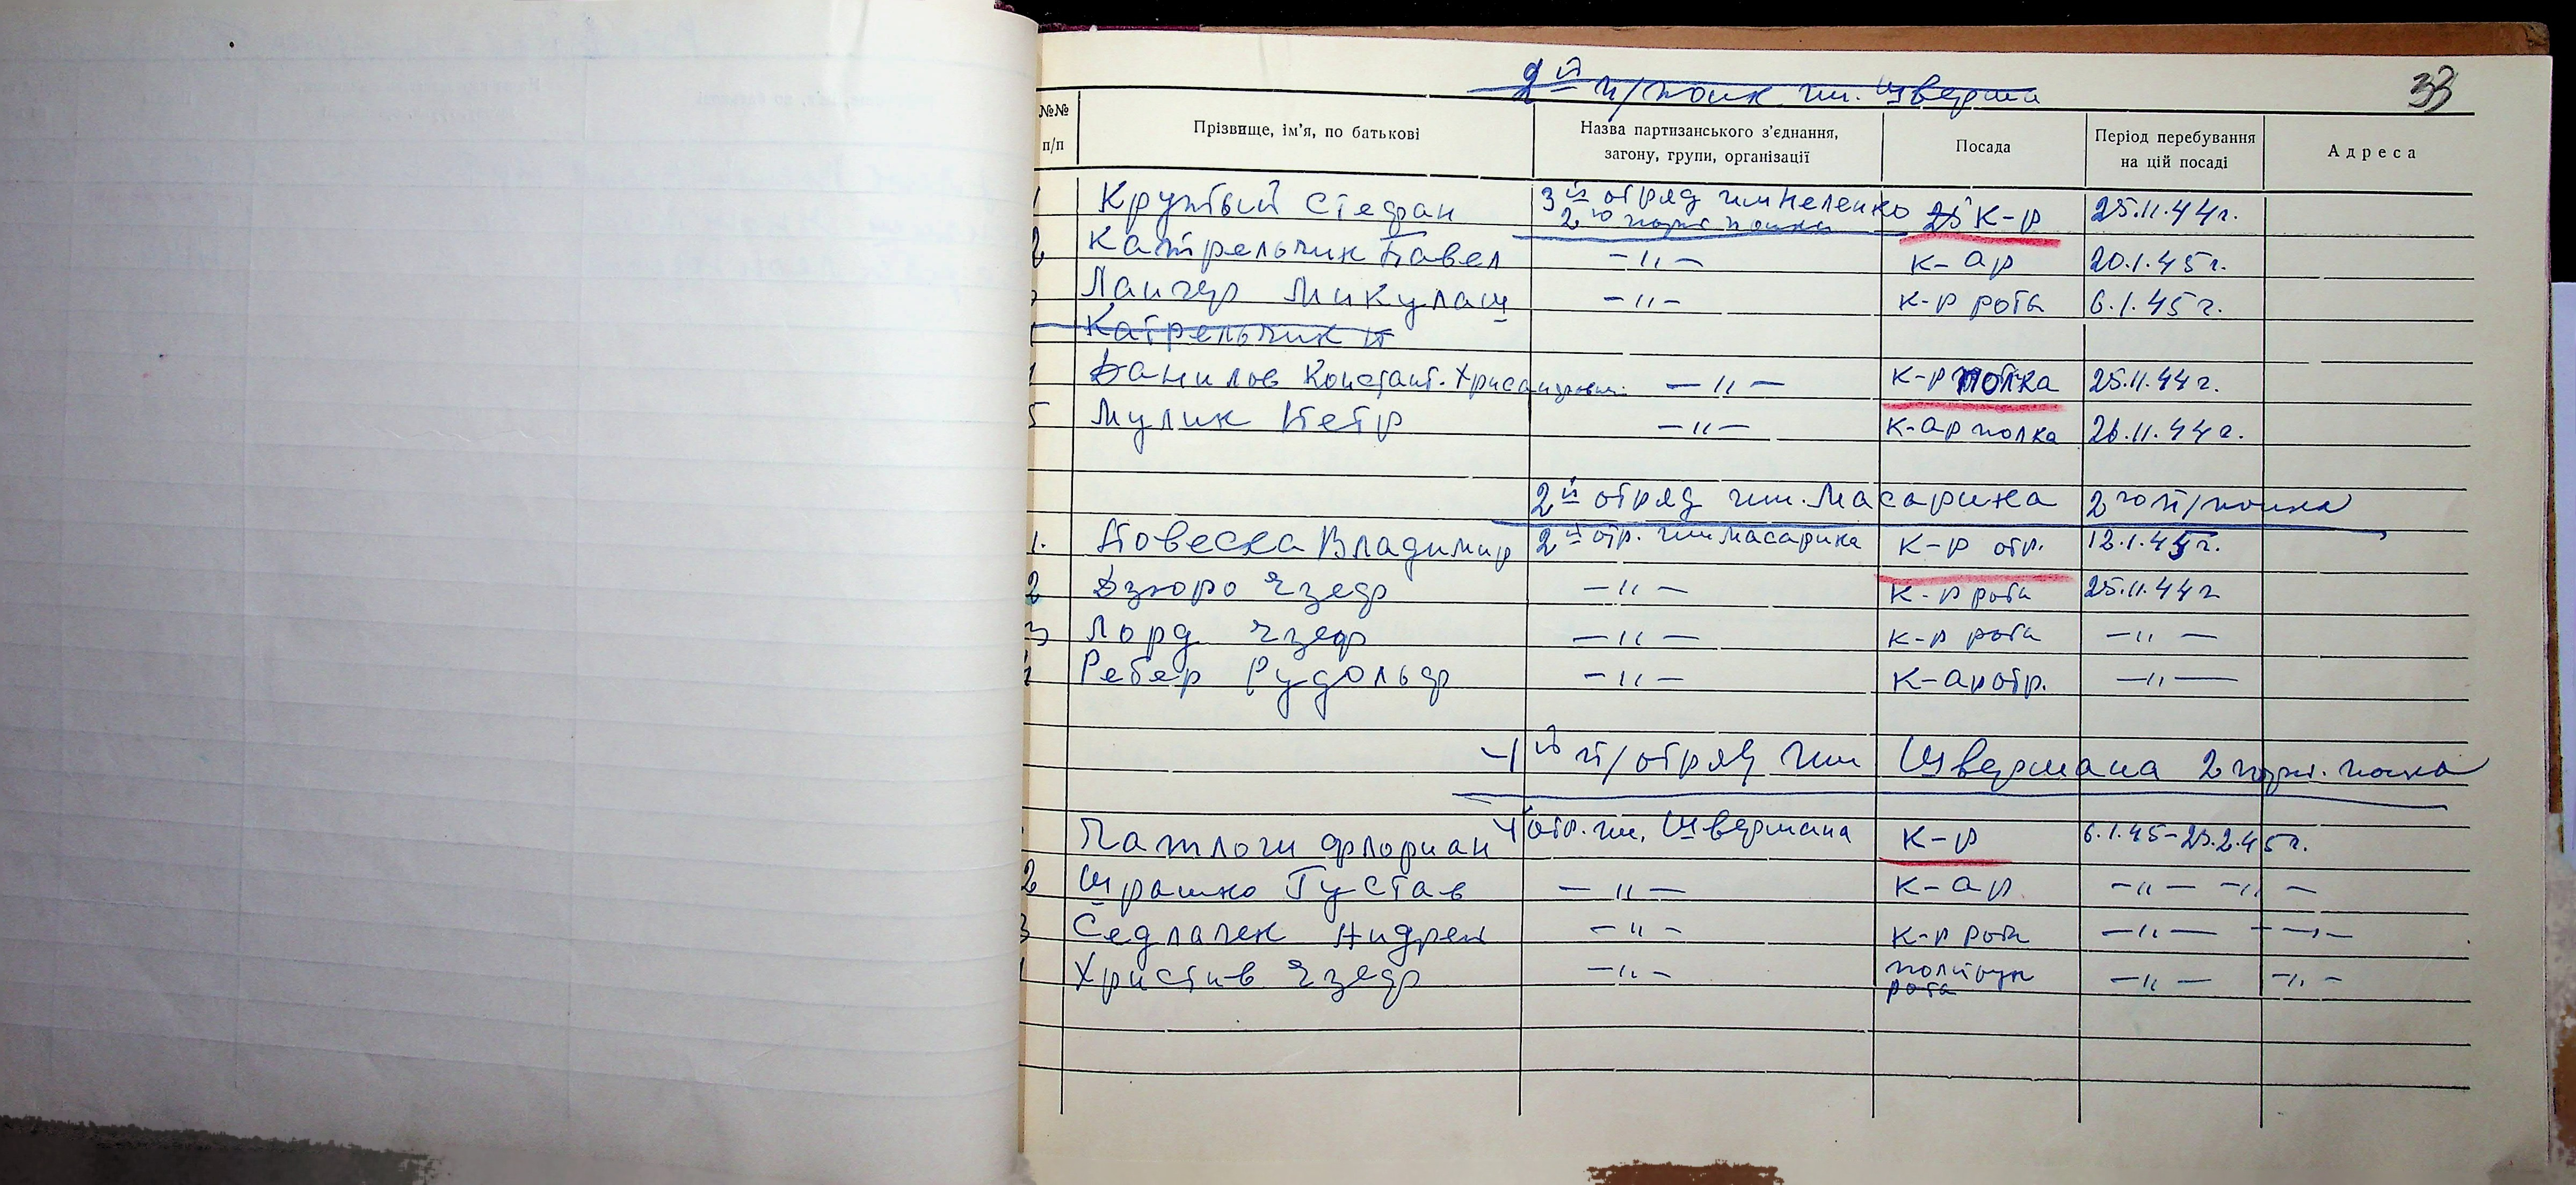 2й п/полк им. Шверма
33
№№ п/п
Прізвище, ім’я, по батькові
Назва партизанського з’єднання, загону, групи, організації
Посада
Період перебування на цій посаді
Адреса
1 Крутый Стефан 3й отряд им 2го парт полка К-р 25.11.44г.
2 Катрельчик Павел —"— к-ар 20.1.45г.
Лангер Микулаш —"— к-р рота 6.1.45г.
Катрельчик П
Данилов Констант. Хрисанфович —"— к-р полка 25.11.44г.
5 Мулик Петр —"— к-ар полка 26.11.44г.
2й отряд им. Масарика 2го п/полка
1. Повеска Владимир 2й отр. им Масарика к-р отр. 12.1.45г.
2 Дзюро Язеф —"— к-р рота 25.11.44г
3 Лорд Язеф —"— к-р рота —"—
Ребер Рудольф —"— к-ар отр. —"—
1й п/отряд им Швермана 2 парт. полка
Патлоги Флориан отр. им. Швермана к-р 6.1.45-23.2.45г.
2 Шрашко Густав —"— к-ар —"— —"—
3 Седлачек Андрей —"— к-р рота —"— —"—
Христив Язеф —"— рота —"— —"—